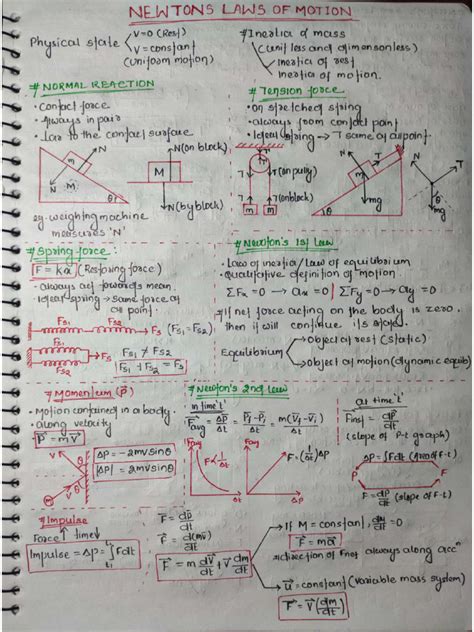 NEWTONS LAWS OF MOTION
Physical state
V=0 (Rest)
V = constant
(Uniform motion)
# Inertia α mass
(unitless and dimensonless)
Inertia of rest
inertia of motion.
# NORMAL REACTION
• Contact force
• Always in pair
• Lar to the contact surface
N
m
N
M
θ
N(on block)
M
N(by block)
eg. weighting machine
measures 'N'
# Tension force
• on stretched string
• always from contact point
• Ideal string → T same at all point.
T
T
T(on pully)
T
T(on block)
m
m
N
T
m
mg
θ
N
T
mg
# Spring force :
F = kx (Restoring force)
• always act towards mean.
• ideal spring → same force at
all point.
Fs1
Fs2
Fs (Fs1 = Fs2)
Fs1
Fs2
Fs
Fs1 ≠ Fs2
Fs1 + Fs2 = Fs
# Newton's 1st Law
• Law of inertia/Law of equilibrium
• Qualitative definition of motion.
ΣFx = 0 → ax = 0 | ΣFy = 0 → ay = 0
• If net force acting on the body is zero.
then it will continue its state.
Equilibrium
Object at rest (static)
object at motion (dynamic equib)
# Momentum (P⃗)
• Motion contained in a body.
• along velocity
P⃗ = mv⃗
V
θ
θ
V
m
ΔP = -2mvsinθ
|ΔP| = 2mvsinθ
# Newton's 2nd Law
in time 't'
F⃗avg = ΔP⃗/Δt = (P⃗f - P⃗i)/Δt = m(V⃗f - V⃗i)/Δt
Favg
F∝1/Δt
Δt
Favg
F=(1/Δt)ΔP
ΔP
at time 't'
Finst = dP⃗/dt
(slope of P-t graph)
ΔP = ∫Fdt (Area of F-t)
P
F
F = dP/dt (slope of P-t)
# Impulse
Force ↑ time ↓
Impulse = ΔP = ∫Fdt
F⃗ = dP⃗/dt
F⃗ = d(mv⃗)/dt
F⃗ = m dv⃗/dt + v⃗ dm/dt
If M = constant, dm/dt = 0
F⃗ = ma⃗
*direction of Fnet always along accⁿ
v⃗ = constant (variable mass system)
F⃗ = V⃗(dm/dt)